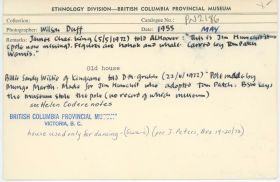 ETHNOLOGY DIVISION—BRITISH COLUMBIA PROVINCIAL MUSEUM
Collection Catalogue No.: PN2196
Photographer: Wilson Duff 1955 MAY
Remarks: James Chas. King (5/5/1972) told Al Hoover: "This is Jim Humchitt's
(pole now missing). Figures are hohok and whale. Carved by Tom Patch
Wannis."
Old house
Billie Sandy Willie of Kingcome told D.M. (23/4/1972) Pole made by
Mungo Martin. Made for Jim Humchitt who adopted Tom Patch. BSW says
the museum stole the pole (no record of which museum)
see Helen Codere notes
BRITISH COLUMBIA PROVINCIAL MUSEUM
VICTORIA, B. C.
house used only for dancing - (per J. Peters, Apr 19-20/76)